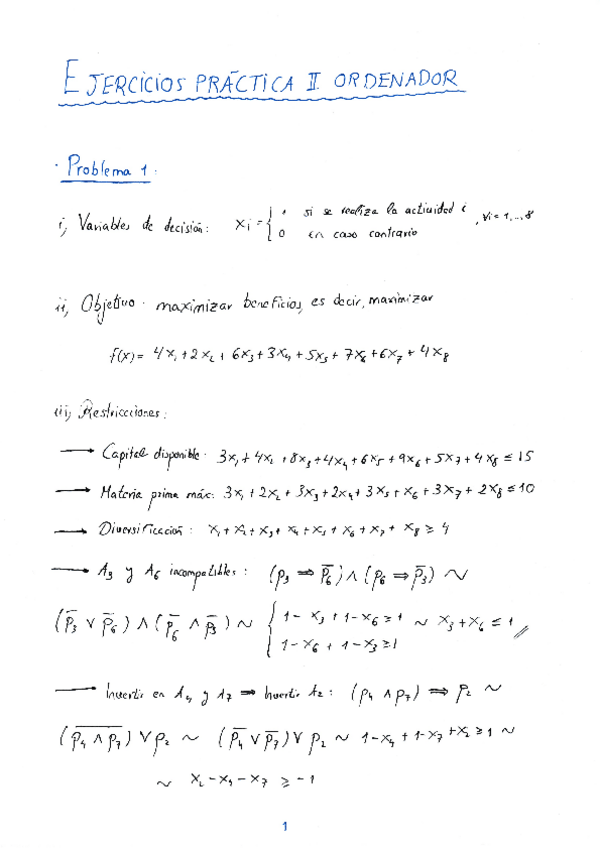 EJERCICIOS PRÁCTICA II ORDENADOR
· Problema 1:
i, Variables de decisión: xi = { 1 si se realiza la actividad i
0 en caso contrario , ∀i = 1,..,8
ii, Objetivo · maximizar beneficios, es decir, maximizar
f(x) = 4x₁ + 2x₂ + 6x₃ + 3x₄ + 5x₅ + 7x₆ + 6x₇ + 4x₈
iii, Restricciones:
→ Capital disponible · 3x₁ + 4x₂ + 8x₃ + 4x₄ + 6x₅ + 9x₆ + 5x₇ + 4x₈ ≤ 15
→ Materia prima máx: 3x₁ + 2x₂ + 3x₃ + 2x₄ + 3x₅ + x₆ + 3x₇ + 2x₈ ≤ 10
→ Diversificación: x₁ + x₂ + x₃ + x₄ + x₅ + x₆ + x₇ + x₈ ≥ 4
→ A₃ y A₆ incompatibles: (p₃ ⇒ p̅₆) ∧ (p₆ ⇒ p̅₃) ~
(p̅₃ ∨ p̅₆) ∧ (p̅₆ ∧ p̅₃) ~ { 1 - x₃ + 1 - x₆ ≥ 1 ~ x₃ + x₆ ≤ 1 //
1 - x₆ + 1 - x₃ ≥ 1
→ Invertir en A₄ y A₇ ⇒ Invertir A₂: (p₄ ∧ p₇) ⇒ p₂ ~
(p̅₄ ∧ p̅₇) ∨ p₂ ~ (p̅₄ ∨ p̅₇) ∨ p₂ ~ 1 - x₄ + 1 - x₇ + x₂ ≥ 1 ~
~ x₂ - x₄ - x₇ ≥ -1
1